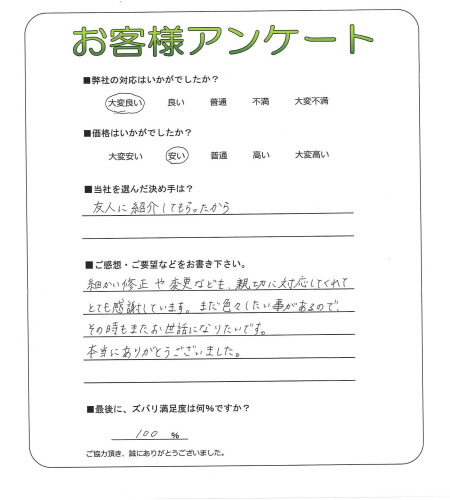 お客様アンケート
■弊社の対応はいかがでしたか？
大変良い 良い 普通 不満 大変不満
■価格はいかがでしたか？
大変安い 安い 普通 高い 大変高い
■当社を選んだ決め手は？
友人に紹介してもらったから
■ご感想・ご要望などをお書き下さい。
細かい修正や変更なども、親切に対応してくれて
とても感謝しています。まだ色々したい事があるので、
その時もまたお世話になりたいです。
本当にありがとうございました。
■最後に、ズバリ満足度は何%ですか？
100 %
ご協力頂き、誠にありがとうございました。